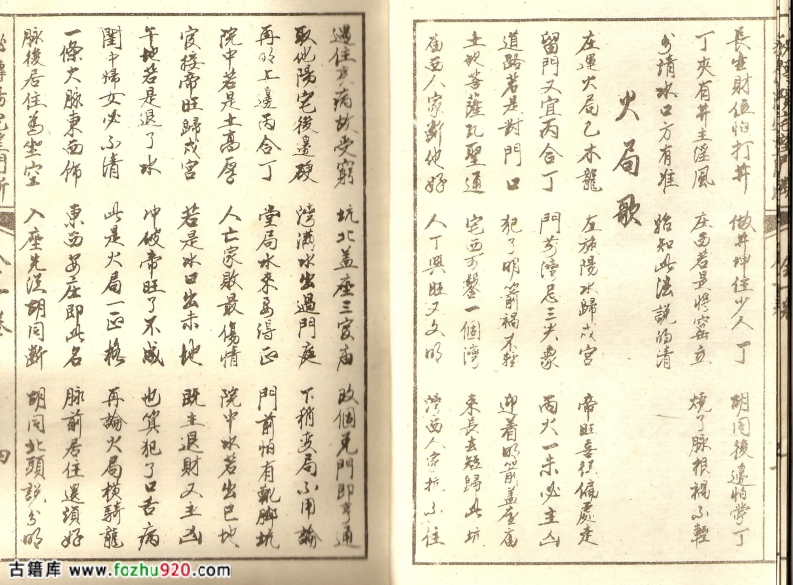 長生財位怕打井 做井坤住少人丁 胡同後邊怕掌丁
丁夾有井主淫風 庄西若是將窑立 燒了脉根禍不輕
分清水口方有准 始知此法說的清
火局歌
左運火局乙木龍 左旋陽水歸戌宫 帝旺喜從偏處走
留門又宜丙合丁 門前灣忌三尖象 丙火一来必主凶
道路若是對門口 犯了明箭禍不輕 迎着明箭蓋座庙
土地菩薩孔聖通 宅西可鑿一個灣 来長去短歸此坑
庙西人家漸他好 人丁興旺又文明 灣西人家抗不住
過住方病故受窮 坑北蓋座三官庙 改個兑門即亨通
取他陽宅後邊硬 灣滿水出過門庭 下稍局不用論
再明上邊丙合丁 堂局水来要得正 門前怕有靴脚坑
院中若是土高厚 人亡家敗最傷情 院中水若出巳地
官接帝旺歸戌宫 若是水口出未地 既主退財又主凶
午地若是退了水 冲破帝旺了不成 也算犯了口舌病
閨中婦女必不清 此是火局一正格 再論火局横騎龍
一條大脉東西飾 東西安庄即此名 脉前居住還頭好
脉後居住為坐空 入座先從胡同断 胡同北頭說分明
四
古籍库 www.fozhu920.com